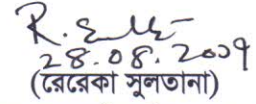 28.08.2009
(রেরেকা সুলতানা)